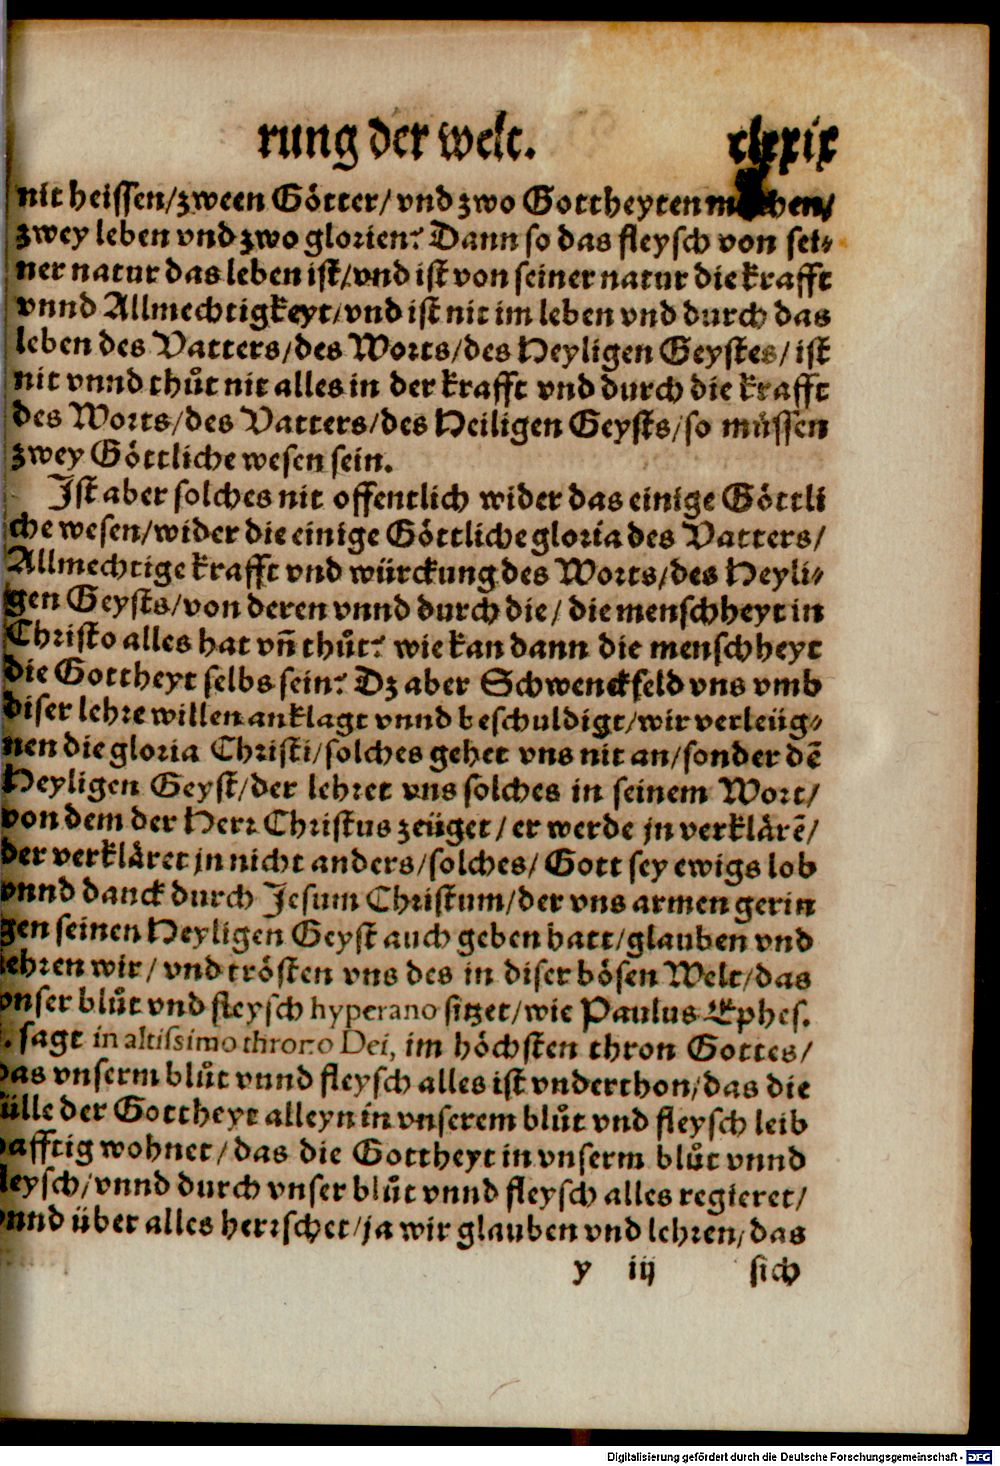 rung der welt. clxxix
nit heissen/zween Götter/vnd zwo Gottheyten machen/
zwey leben vnd zwo glorien? Dann so das fleysch von sei⸗
ner natur das leben ist/vnd ist von seiner natur die krafft
vnnd Allmechtigkeyt/vnd ist nit im leben vnd durch das
leben des Vatters/des Worts/des Heyligen Geystes/ist
nit vnnd thůt nit alles in der krafft vnd durch die krafft
des Worts/des Vatters/des Heiligen Geysts/so müssen
zwey Göttliche wesen sein.
Ist aber solches nit offentlich wider das einige Göttli
che wesen/wider die einige Göttliche gloria des Vatters/
Allmechtige krafft vnd würckung des Worts/des Heyli⸗
gen Geysts/von deren vnnd durch die/die menschheyt in
Christo alles hat vñ thůt? wie kan dann die menschheyt
die Gottheyt selbs sein? Dz aber Schwenckfeld vns vmb
diser lehre willen anklagt vnnd beschuldigt/wir verleüg⸗
nen die gloria Christi/solches gehet vns nit an/sonder dẽ
Heyligen Geyst/der lehret vns solches in seinem Wort/
von dem der Herr Christus zeüget/er werde jn verklärẽ/
der verkläret jn nicht anders/solches/Gott sey ewigs lob
vnnd danck durch Jesum Christum/der vns armen gerin
gen seinen Heyligen Geyst auch geben hatt/glauben vnd
lehren wir/vnd trösten vns des in diser bösen Welt/das
vnser blůt vnd fleysch hyperano sitzet/wie Paulus Ephes.
. sagt in altissimo throno Dei, im höchsten thron Gottes/
das vnserm blůt vnnd fleysch alles ist vnderthon/das die
fülle der Gottheyt alleyn in vnserem blůt vnd fleysch leib
hafftig wohnet/das die Gottheyt in vnserm blůt vnnd
fleysch/vnnd durch vnser blůt vnnd fleysch alles regieret/
vnnd über alles herrschet/ja wir glauben vnd lehren/das
y iij sich
Digitalisierung gefördert durch die Deutsche Forschungsgemeinschaft - DFG